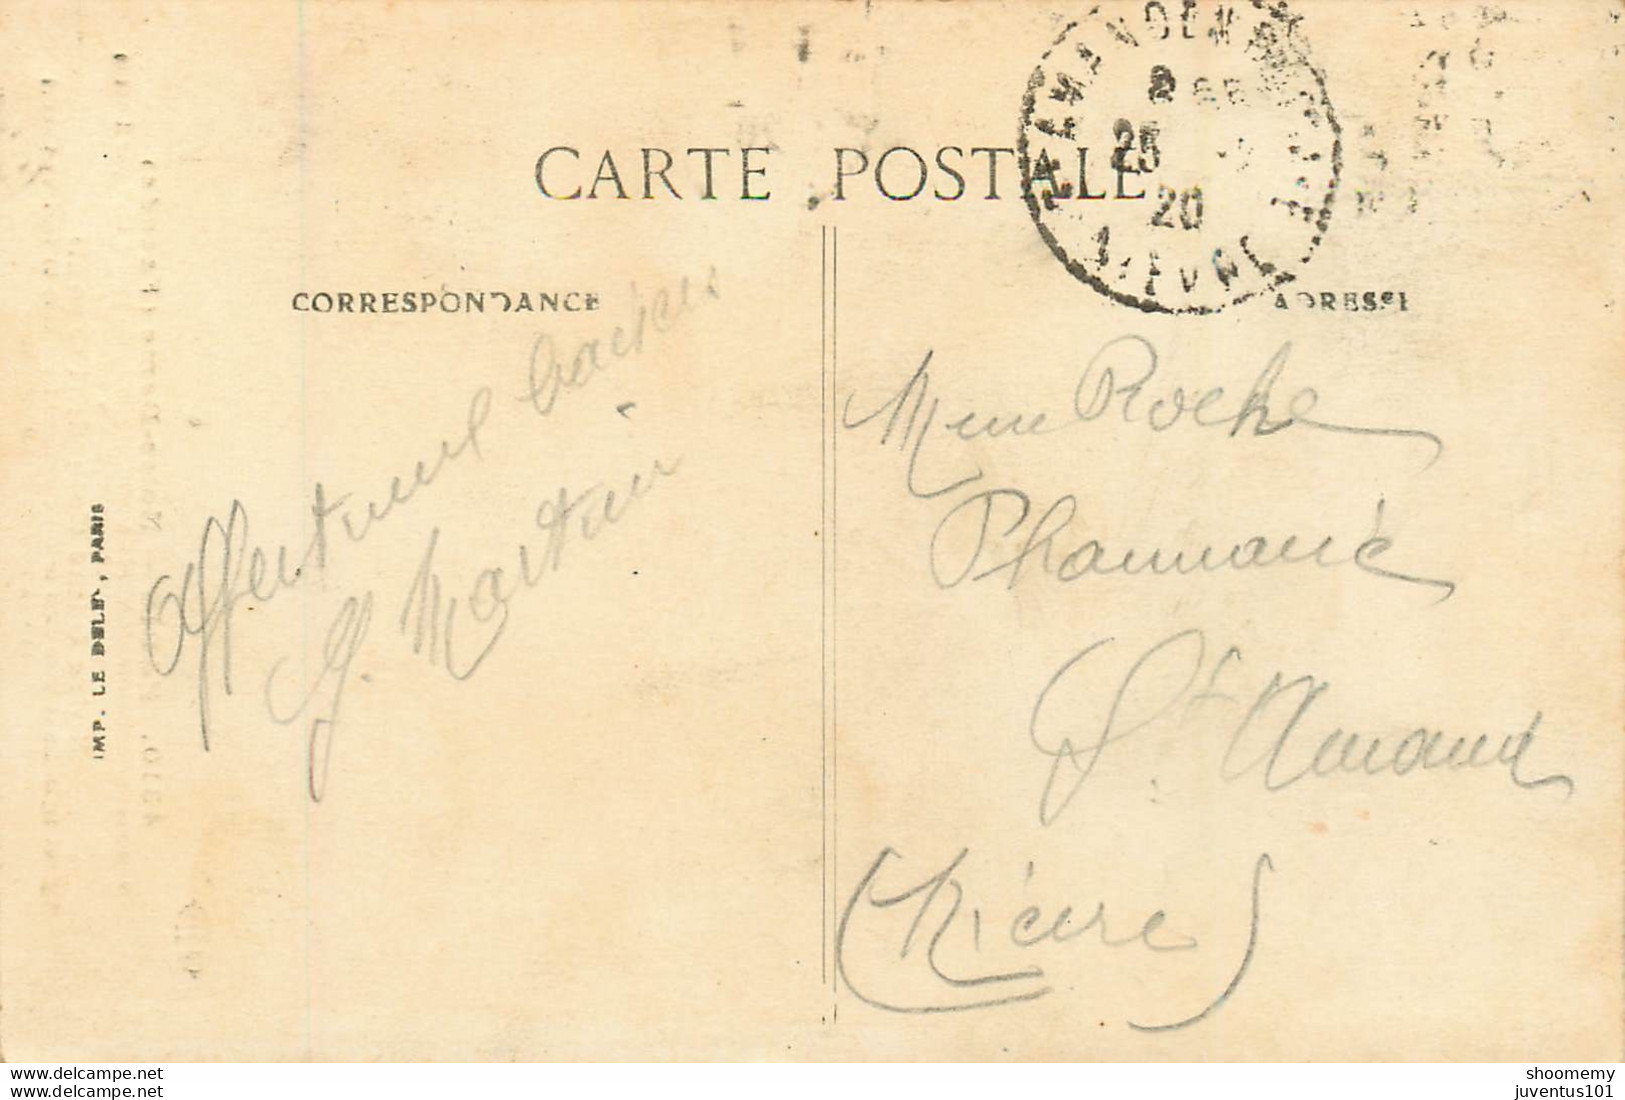 CARTE POSTALE
25
20
CORRESPONDANCE
ADRESSE
Affectueux baisers
J. Martin
Mme Roche
Pharmacie
St Amand
(Nièvre)
IMP. LE DELEY, PARIS
www.delcampe.net
www.delcampe.net
shoomemy
juventus101